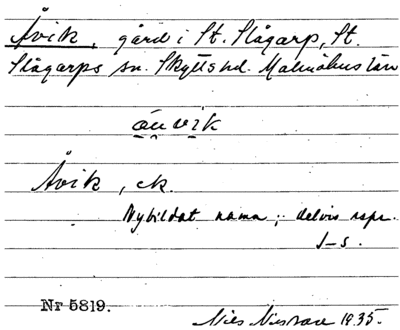 Åvik, gård i St. Slågarp, St.
Slågarps sn. Skytts hd. Malmöhus län
Åvik, ek.
Nybildat namn; delvis repr.
J-s.
Nr 5819.
Nils 1935.